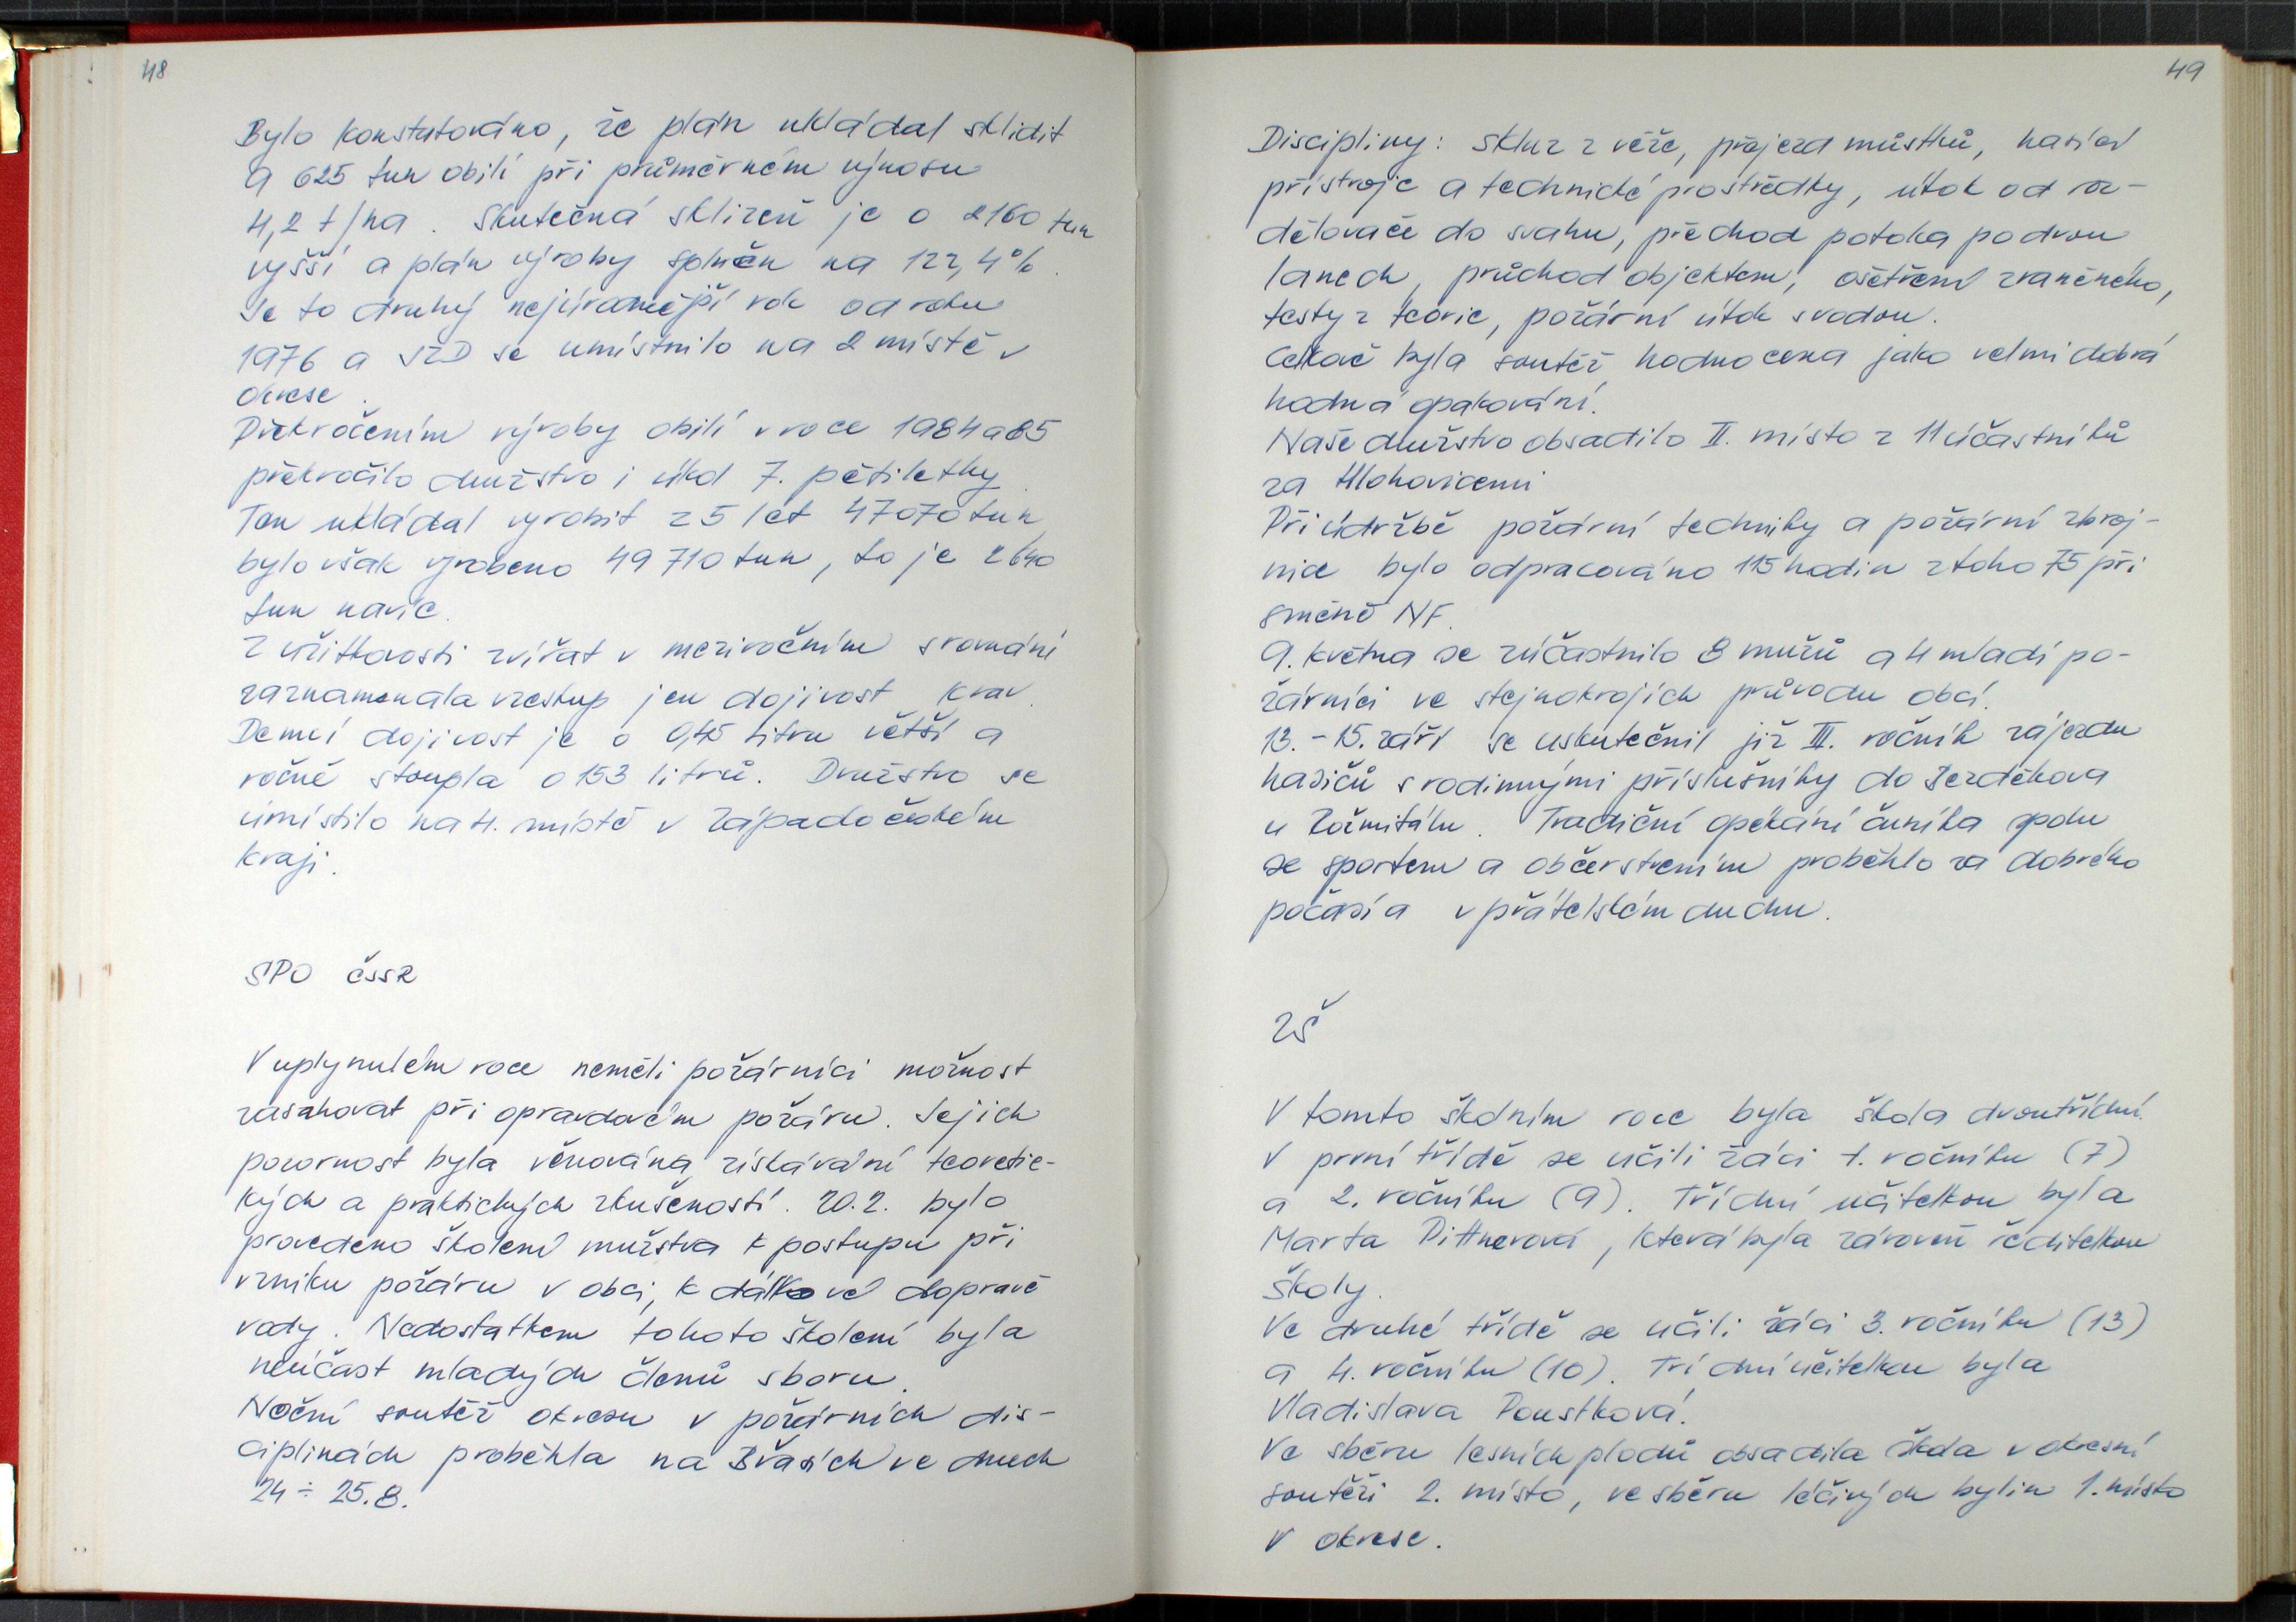 48
Bylo konstatováno, že plán ukládal sklidit
9 625 tun obilí při průměrném výnosu
4,2 t/ha. Skutečná sklizeň je o 2160 tun
vyšší a plán výroby splněn na 122,4%.
Je to druhý nejúrodnější rok od roku
1976 a JZD se umístnilo na 2 místě v
okrese.
Překročením výroby obilí v roce 1984 a 85
překročilo družstvo i úkol 7. pětiletky.
Ten ukládal vyrobit z 5 let 47070 tun
bylo však vyrobeno 49 710 tun, to je 2640
tun navíc.
Z užitkovosti zvířat v meziročním srovnání
zaznamenala vzestup jen dojivost krav.
Denní dojivost je o 0,45 litru větší a
ročně stoupla o 153 litrů. Družstvo se
umístilo na 4. místě v Západočeském
kraji.
SPO ČSSR
V uplynulém roce neměli požárníci možnost
zasahovat při opravdovém požáru. Jejich
pozornost byla věnována získávání teoretic-
kých a praktických zkušeností. 20.2. bylo
provedeno školení mužstva k postupu při
vzniku požáru v obci, k dálkové dopravě
vody. Nedostatkem tohoto školení byla
neúčast mladých členů sboru.
Noční soutěž okresu v požárních dis-
ciplinách proběhla na Břasích ve dnech
24 ÷ 25.8.
49
Discipliny: skluz z věže, přejezd můstků, hasící
přístroje a technické prostředky, útok od roz-
dělovače do svahu, přechod potoka po dvou
lanech, průchod objektem, ošetření zraněného,
testy z teorie, požární útok s vodou.
Celkově byla soutěž hodnocena jako velmi dobrá
hodná opakování.
Naše družstvo obsadilo II. místo z 11 účastníků
za Hlohovicemi
Při údržbě požární techniky a požární zbroj-
nice bylo odpracováno 115 hodin z toho 75 při
směně NF.
9. května se zúčastnilo 8 mužů a 4 mladí po-
žárníci ve stejnokrojích průvodu obcí.
13. - 15. září se uskutečnil již III. ročník zájezdu
hasičů s rodinnými příslušníky do Sezděkova
u Rožmitálu. Tradiční opékání čuníka spolu
se sportem a občerstvením proběhlo za dobrého
počasí a v přátelském duchu.
ZŠ
V tomto školním roce byla škola dvoutřídní.
V první třídě se učili žáci 1. ročníku (7)
a 2. ročníku (9). Třídní učitelkou byla
Marta Pittnerová, která byla zároveň ředitelkou
školy.
Ve druhé třídě se učili žáci 3. ročníku (13)
a 4. ročníku (10). Třídní učitelkou byla
Vladislava Poustková.
Ve sběru lesních plodů obsadila škola v okresní
soutěži 2. místo, ve sběru léčivých bylin 1. místo
v okrese.